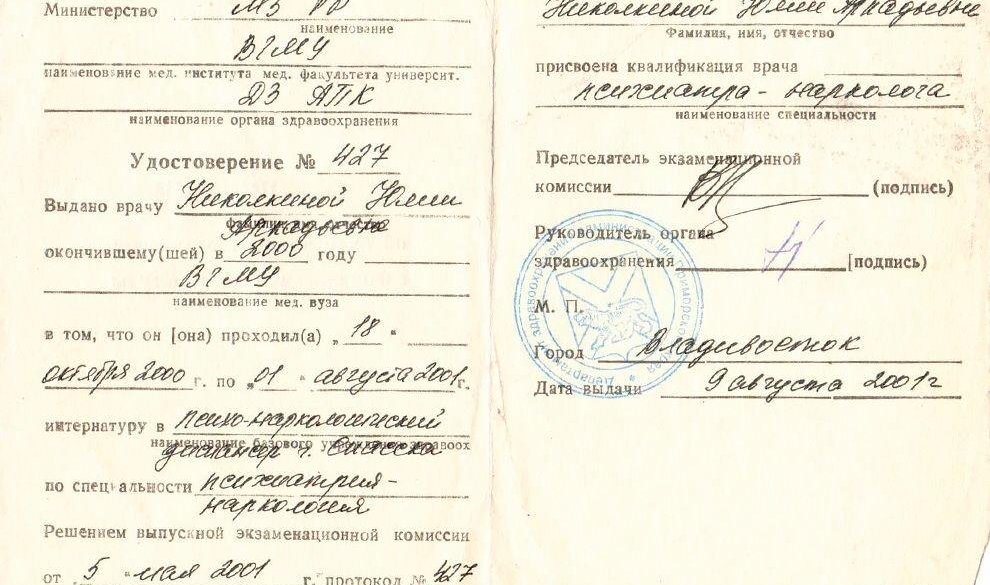 Министерство МЗ РФ
наименование
ВГМУ
наименование мед. института мед. факультета университ.
ДЗ АПК
наименование органа здравоохранения
Удостоверение № 427
Выдано врачу Николкиной Юлии
Аркадьевне
окончившему(шей) в 2000 году
ВГМУ
наименование мед. вуза
в том, что он [она) проходил(а) „ 18 "
октября 2000 г. по „ 01 " августа 2001 г.
интернатуру в психо-наркологический
наименование базового учреждения здравоох
диспансер г. Спасска
по специальности психиатрия-
наркология
Решением выпускной экзаменационной комиссии
от „ 5 " мая 2001 г. протокол № 427
Николкиной Юлии Аркадьевне
Фамилия, имя, отчество
присвоена квалификация врача
психиатра - нарколога
наименование специальности
Председатель экзаменационной
комиссии (подпись)
Руководитель органа
здравоохранения [подпись)
М. П.
Город Владивосток
Дата выдачи 9 августа 2001г